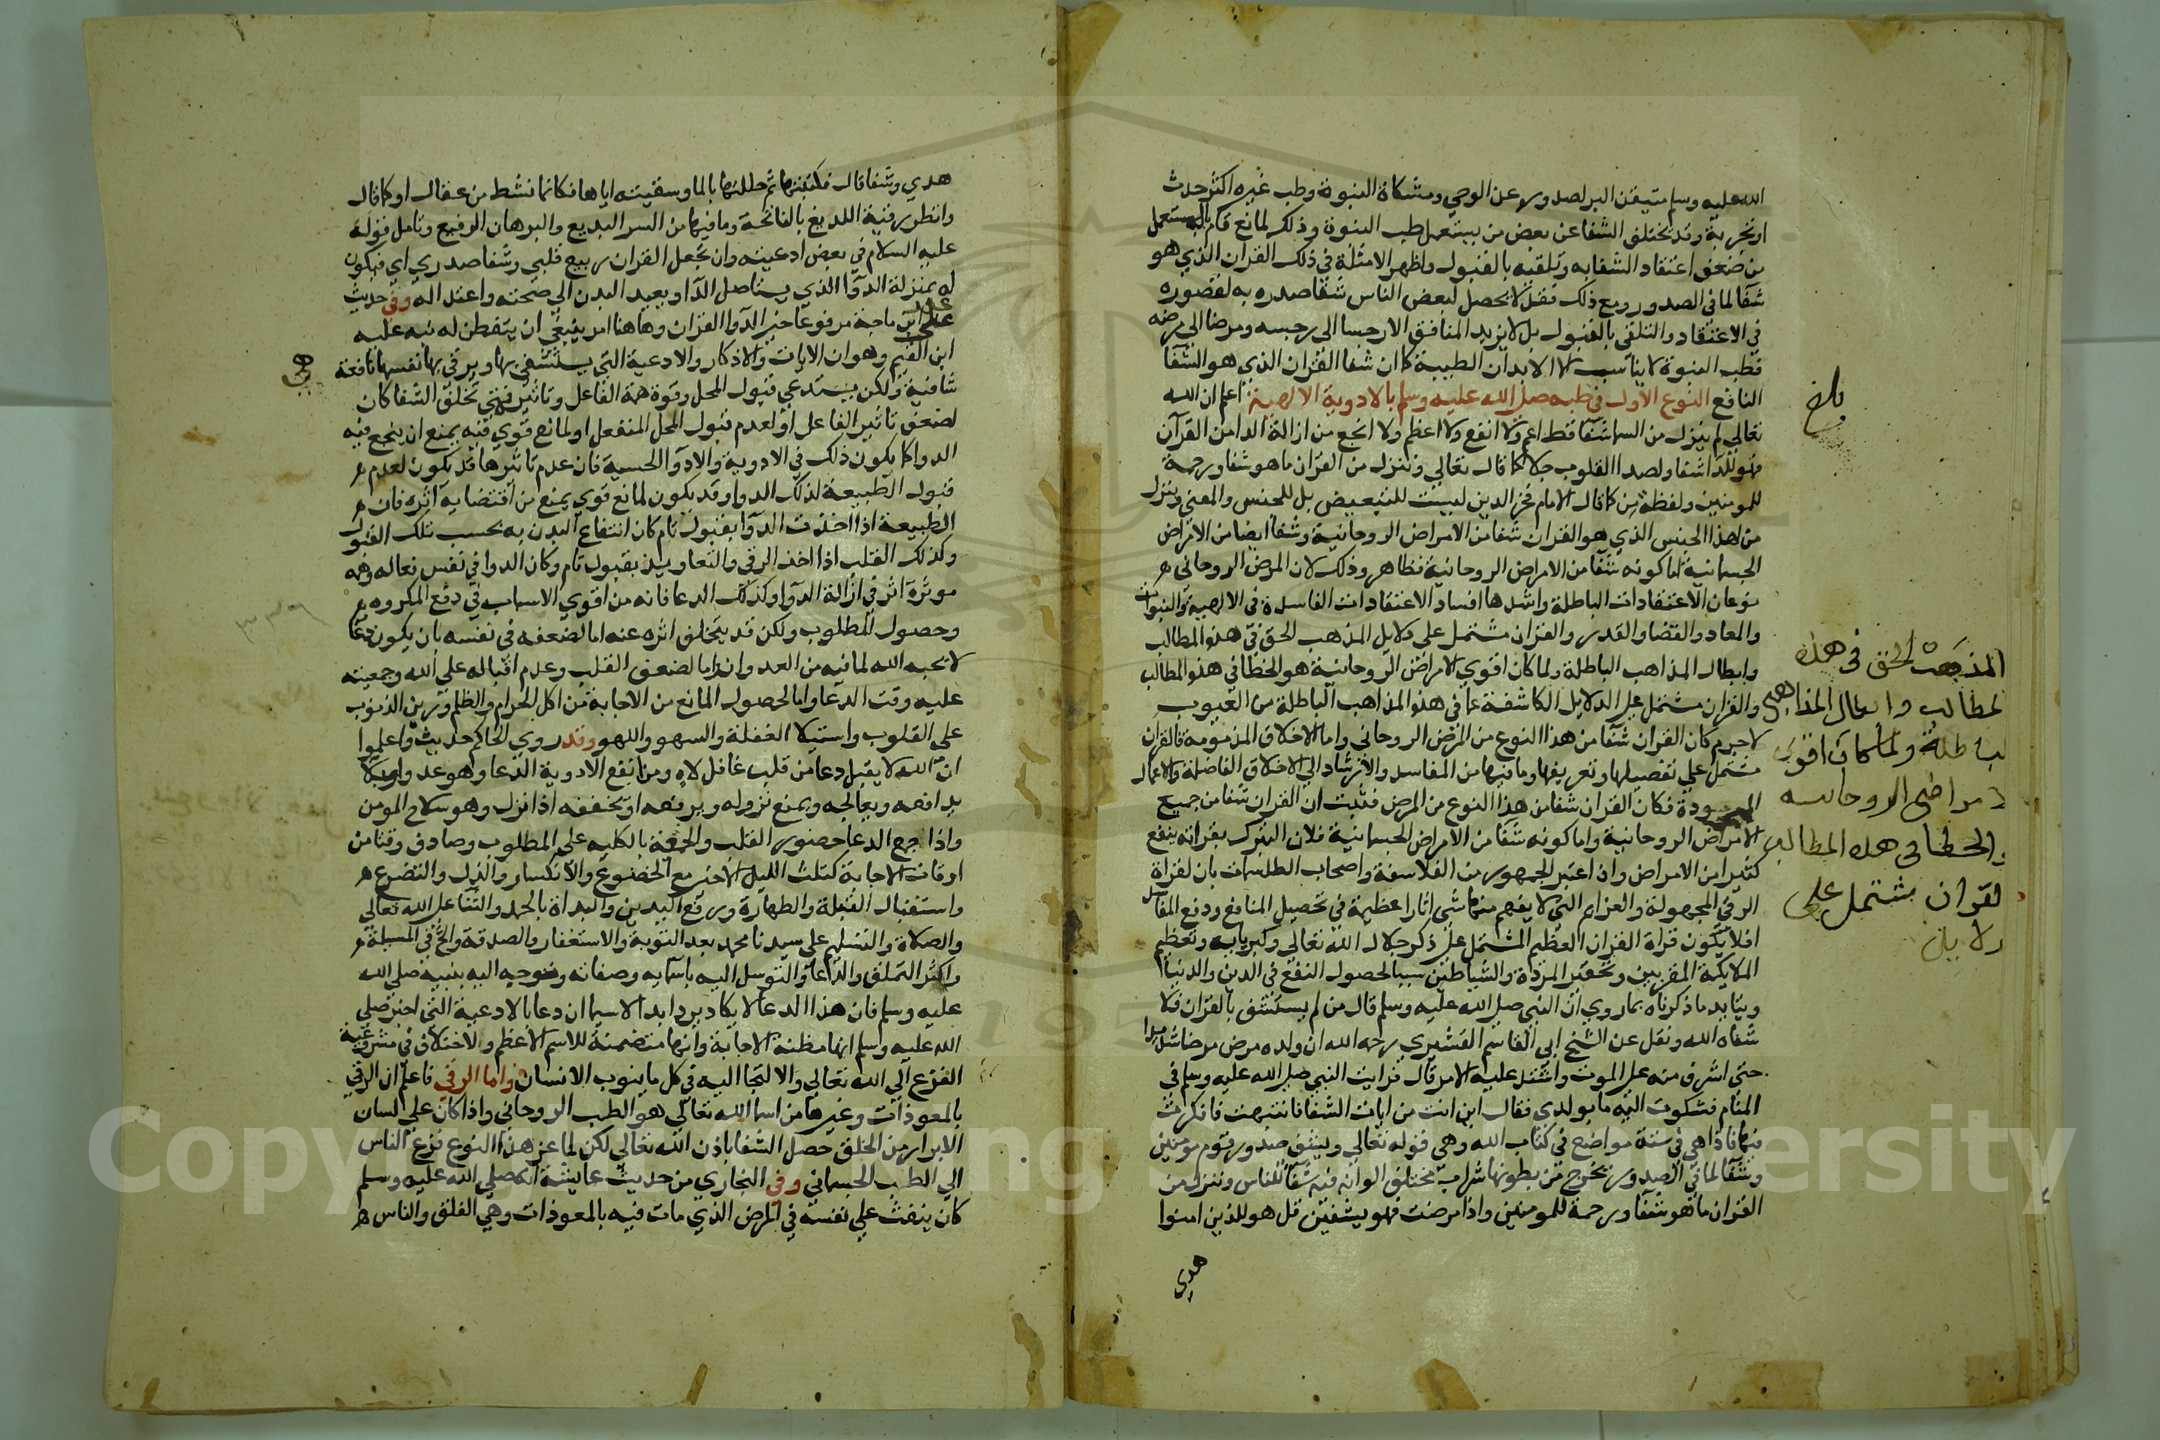 الله عليه وسلم متيقن البر لصدوره عن الوحي ومشكاة النبوة وطب غيره اكثر حدث
او تجربة وقد يختلف الشفا عن بعض من يستعمل طب النبوة وذلك لمانع قام بالمستعمل
من ضعف اعتقاد الشفا به وتلقيه بالقبول واظهر الامثلة في ذلك القران الذي هو
شفا لما في الصدور ومع ذلك فقد لا يحصل لبعض الناس شفا صدره به لقصوره
في الاعتقاد والتلقي بالقبول بل لا يزيد المنافق الا رجسا الى رجسه ومرضا الى مرضه
فطب النبوة لا يناسب الا الابدان الطيبة كما ان شفا القران الذي هو الشفا
النافع النوع الاول في طبه صلى الله عليه وسلم بالادوية الالهية اعلم ان الله
تعالى لم ينزل من السما شفا قط اعم ولا انفع ولا اعظم ولا انجع من ازالة الدا من القرآن
فهو للدا شفا ولصدا القلوب جلا كما قال تعالى وننزل من القران ما هو شفا ورحمة
للمومنين ولفظة من كما قال الامام فخر الدين ليست للتبعيض بل للجنس والمعنى وننزل
من هذا الجنس الذي هو القران شفا من الامراض الروحانية وشفا ايضا من الامراض
الجسمانية اما كونه شفا من الامراض الروحانية فظاهر وذلك لان المرض الروحاني
نوعان الاعتقادات الباطلة واشدها افساد الاعتقادات الفاسدة في الالهية والنبوات
والمعاد والقضا والقدر والقران مشتمل على دلايل المذهب الحق في هذه المطالب
وابطال المذاهب الباطلة ولما كان اقوي الامراض الروحانية هو الخطا في هذه المطالب
والقران مشتمل على الدلايل الكاشفة عما في هذه المذاهب الباطلة من العيوب
لا جرم كان القران شفا من هذا النوع من المرض الروحاني واما الاخلاق المذمومة فالقران
مشتمل على تفصيلها وتعريفها وما فيها من المفاسد والارشاد الى الاخلاق الفاضلة والاعمال
المحمودة فكان القران شفا من هذا النوع من المرض فثبت ان القران شفا من جميع
الامراض الروحانية واما كونه شفا من الامراض الجسمانية فلان التبرك بقراته ينفع
كثيرا من الامراض واذا اعتبر الجمهور من الفلاسفة واصحاب الطلسمات بان لقراة
الرقي المجهولة والعزايم التي لا يفهم منها شي اثارا عظيمة في تحصيل المنافع ودفع المفاسد
افلا تكون قراة القران العظيم المشتمل على ذكر جلال الله تعالى وكبريايه وتعظيم
الملايكة المقربين وتحقير المردة والشياطين سببا لحصول النفع في الدين والدنيا
ويتايد ما ذكرناه بما روي ان النبي صلى الله عليه وسلم قال من لم يستشف بالقران فلا
شفاه الله ونقل عن الشيخ ابي القاسم القشيري رحمه الله ان ولده مرض مرضا شديدا
حتى اشرف منه على الموت واشتد عليه الامر قال فرايت النبي صلى الله عليه وسلم في
المنام فشكوت اليه ما بولدي فقال اين انت من ايات الشفا فانتبهت فافكرت
فيها فاذا هي في ستة مواضع في كتاب الله وهي قوله تعالى ويشف صدور قوم مومنين
وشفا لما في الصدور يخرج من بطونها شراب مختلف الوانه فيه شفا للناس وننزل من
القران ما هو شفا ورحمة للمومنين واذا مرضت فهو يشفين قل هو للذين امنوا
هدي
بلغ
المذهب الحق في هذه
المطالب وابطال المذاهب
الباطلة ولما كان اقوي
الامراض الروحانيه
والخطا في هذه المطالب
القران مشتمل على
دلايل
هدي وشفا قال فكتبتها ثم حللتها بالما وسقيته اياها فكانما نشط من عقال او كما قال
وانظر رقية اللديغ بالفاتحة وما فيها من السر البديع والبرهان الرفيع وتامل قوله
عليه السلام في بعض ادعيته وان تجعل القران ربيع قلبي وشفا صدري اي فيكون
له بمنزلة الدوا الذي يستاصل الدا ويعيد البدن الي صحته واعتداله وفي حديث
علي عند ابن ماجة مرفوعا خير الدوا القران وهاهنا امر ينبغي ان يتفطن له نبه عليه
ابن القيم وهو ان الايات والاذكار والادعية التي يستشفى بها ويرقي بها نفسها نافعة
هي
شافية ولكن يستدعي قبول المحل وقوة همة الفاعل وتاثيره فمتي تخلف الشفا كان
لضعف تاثير الفاعل او لعدم قبول المحل المنفعل او لمانع قوي فيه يمنع ان ينجع فيه
الدوا كما يكون ذلك في الادوية والادوا الحسية فان عدم تاثيرها قد يكون لعدم
قبول الطبيعة لذلك الدوا وقد يكون لمانع قوي يمنع من اقتضايه اثره فان
الطبيعة اذا اخذت الدوا بقبول تام كان انتفاع البدن به بحسب تلك القبول
وكذلك القلب اذا اخذ الرقي والتعاويذ بقبول تام وكان الدوا في نفس فعاله وهمه
موثرة اثر في ازالة الدوا وكذلك الدعا فانه من اقوي الاسباب في دفع المكروه
وحصول المطلوب ولكن قد يتخلف اثره عنه اما لضعفه في نفسه بان يكون دعا
لا يحبه الله لما فيه من العدوان واما لضعف القلب وعدم اقباله علي الله وجمعيته
عليه وقت الدعا واما لحصول المانع من الاجابة من اكل الحرام والظلم ورين الذنوب
على القلوب واستيلا الغفلة والسهو واللهو وقد روي الحاكم حديث واعلموا
ان الله لا يقبل دعا من قلب غافل لاه ومن انفع الادوية الدعا وهو عدو البلا
يدافعه ويعالجه ويمنع نزوله ويرفعه او يخففه اذا نزل وهو سلاح المومن
واذا جمع الدعا حضور القلب والجمعة بالكليه على المطلوب وصادف وقتا من
اوقات الاجابة كثلث الليل الاخير مع الخضوع والانكسار والذل والتضرع
واستقبال القبلة والطهارة ورفع اليدين والبداة بالحمد والثنا على الله تعالى
والصلاة والتسليم علي سيدنا محمد بعد التوبة والاستغفار والصدقة والح في المسيلة
واكثر التملق والدعا والتوسل اليه باسمايه وصفاته وتوجيه اليه بنبيه صلى الله
عليه وسلم فان هذا الدعا لا يكاد يرد ابدا لا سيما ان دعا بالادعية التي اخبر صلى
الله عليه وسلم انها مظنة الاجابة وانها متضمنة للاسم الاعظم والاختلاف في مشروعية
الفزع الي الله تعالي والالتجا اليه في كل ما ينوب الانسان واما الرقي فاعلم ان الرقي
بالمعوذات وغيرها من اسما الله تعالي هو الطب الروحاني واذا كان علي لسان
الابرار من الخلق حصل الشفا باذن الله تعالي لكن لما عز هذا النوع فزع الناس
الي الطب الجسماني وفي البخاري من حديث عايشة انه صلى الله عليه وسلم
كان ينفث علي نفسه في المرض الذي مات فيه بالمعوذات وهي الفلق والناس